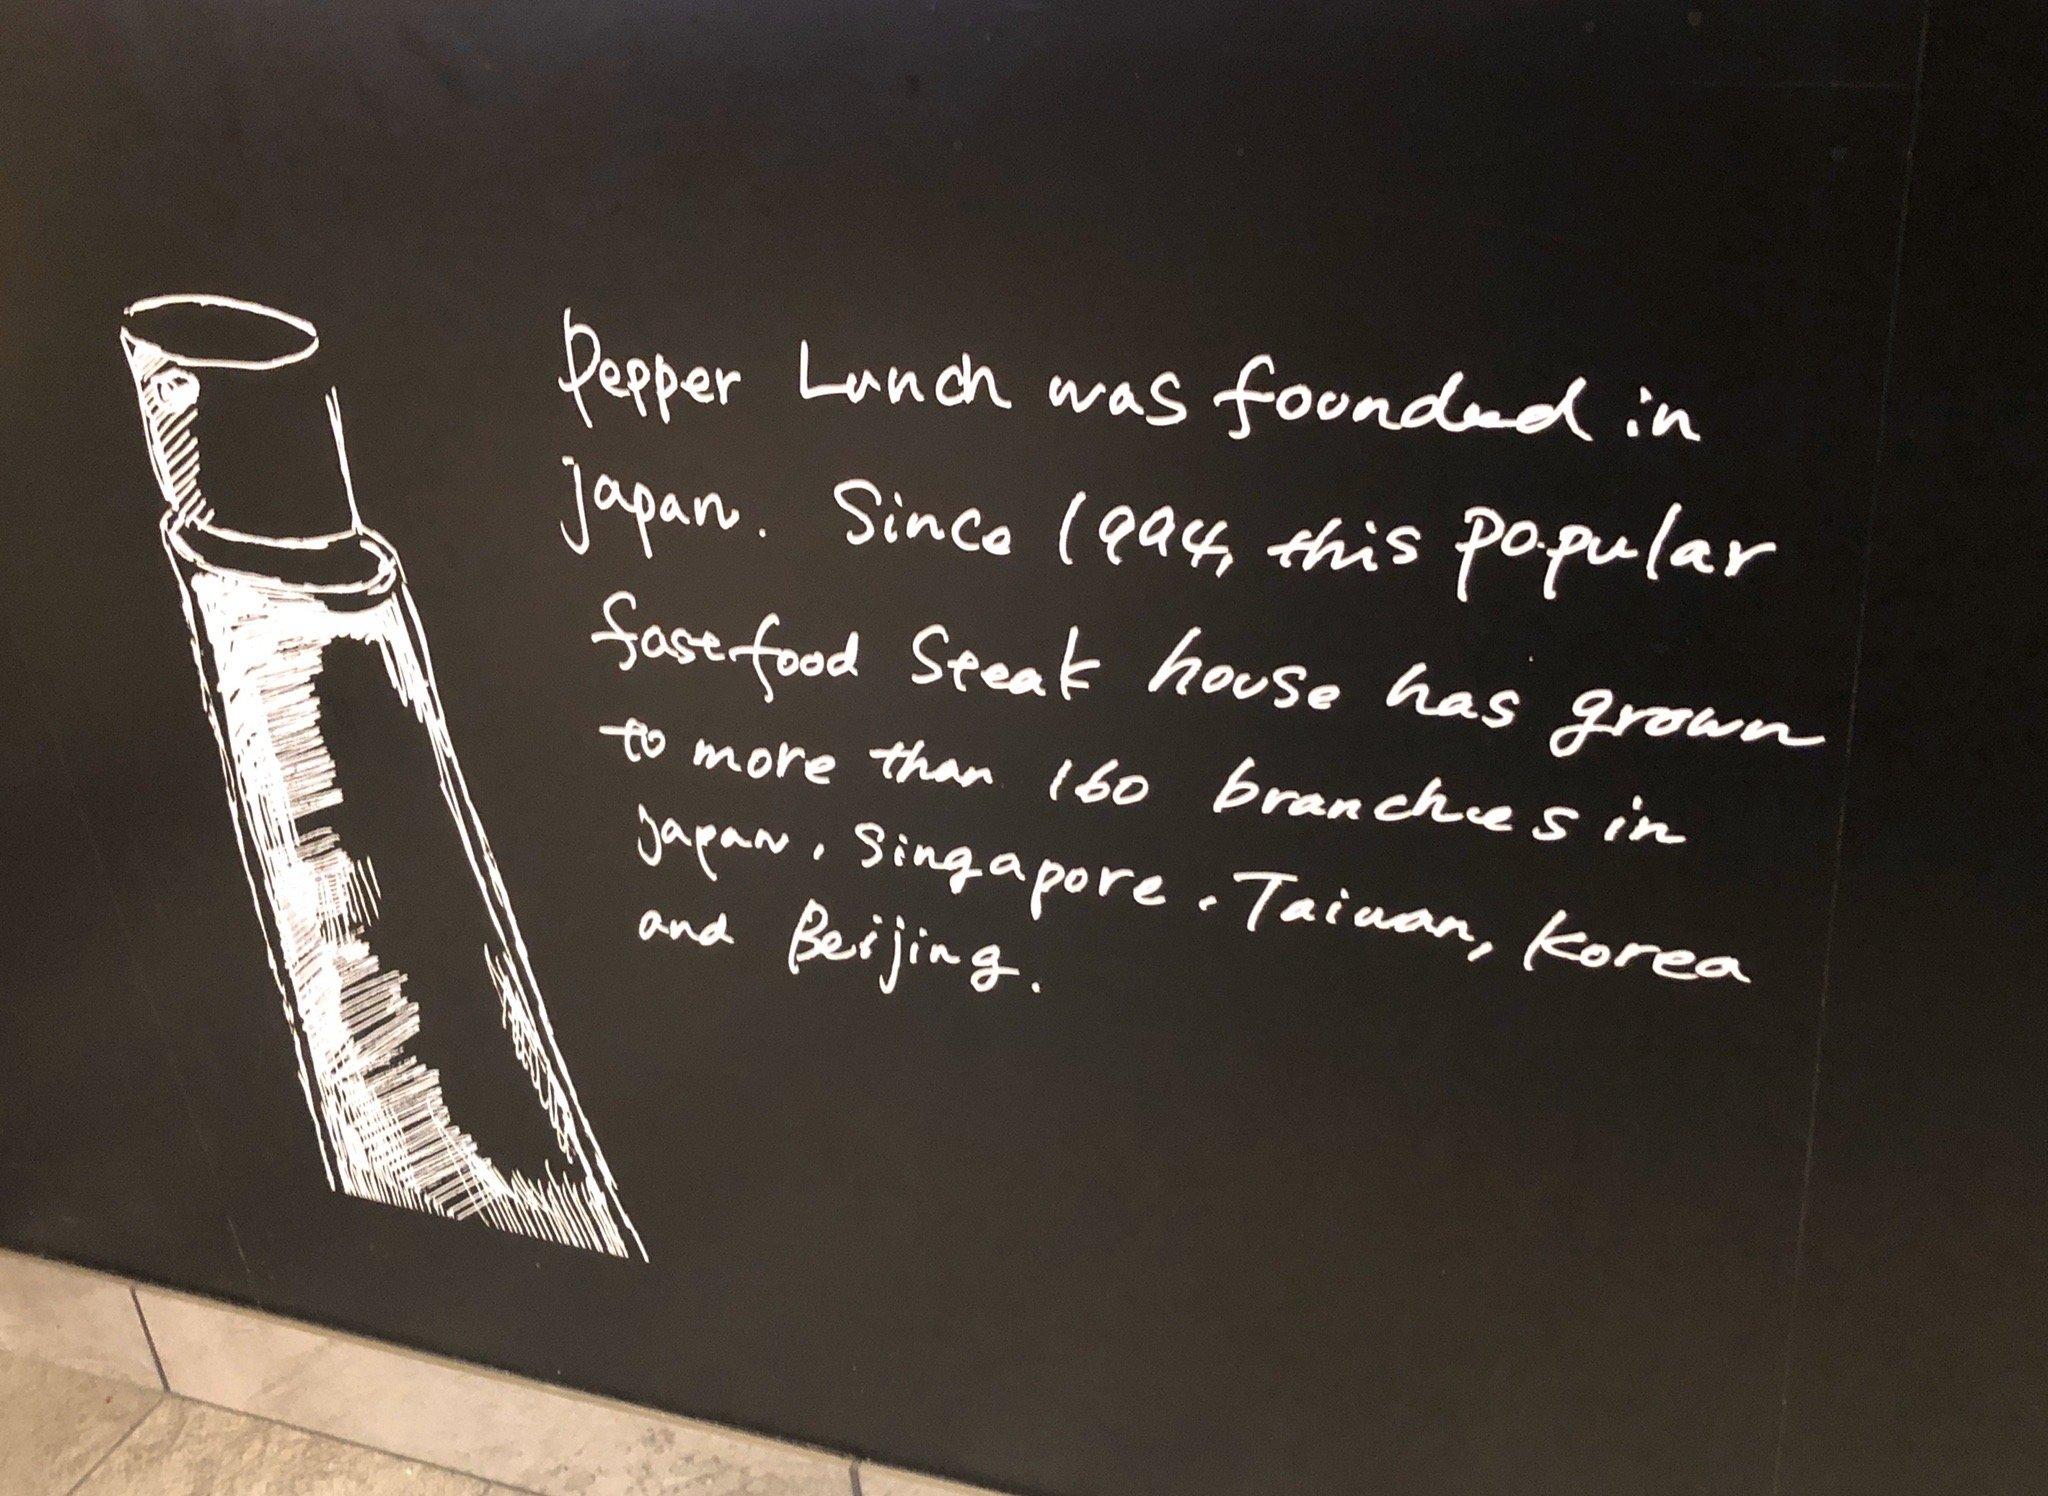 Pepper Lunch was founded in
japan. Since 1994, this popular
fastfood Steak house has grown
to more than 160 branches in
japan, Singapore, Taiwan, Korea
and Beijing.